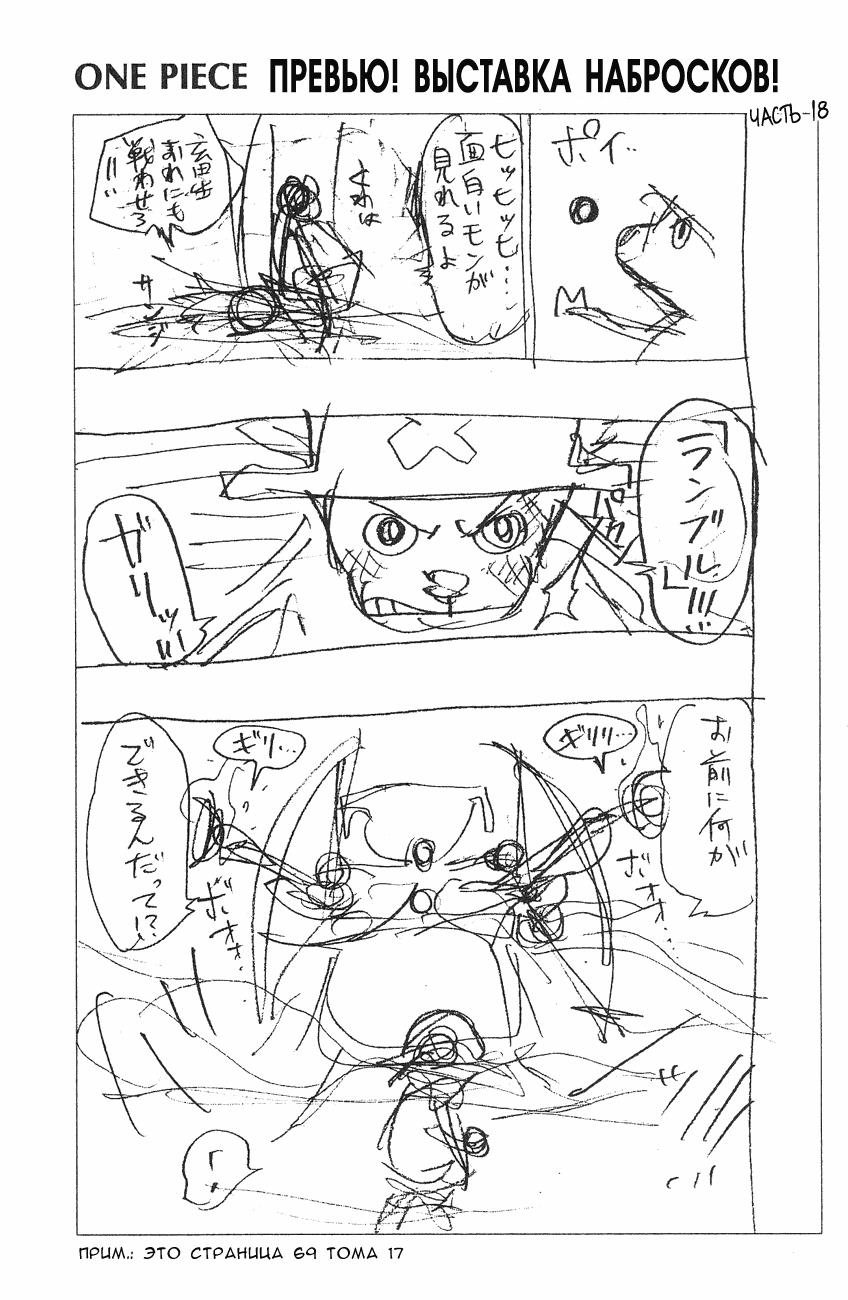 ONE PIECE ПРЕВЬЮ! ВЫСТАВКА НАБРОСКОВ!
ЧАСТЬ-18
ポイ…
ヒッヒッヒ…
面白いモンが
見れるよ
くれは
おれにも
戦わせろ
!!
サンジ
「ランブル!!!」
ガリッ!!
お前に何が
ギリリ…
ギリ…
できるんだって!?
ボオオ…
ボオオ…
ПРИМ.: ЭТО СТРАНИЦА 69 ТОМА 17